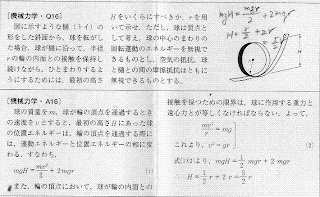 ［機械力学・Q16］
図に示すような樋（トイ）の
形をした斜面から，球を転がし
た場合，球が樋に沿って，半径
rの輪の内面との接触を保持し
続けながら，ひとまわりするよ
うにするためには，最初の高さ
Hをいくらにすべきか，rを用
いて示せ．ただし，球は質点と
して考え，球の中心のまわりの
回転運動のエネルギーを無視で
きるものとし，空気の抵抗，球
と樋との間の摩擦抵抗はともに
無視できるものとする．
H
［機械力学・A16］
球の質量をm，球が輪の頂点を通過するとき
の速度をvとすると，最初の高さHにあった球
の位置エネルギーは，輪の頂点を通過する際に
は，運動エネルギーと位置エネルギーの和に変
わる．すなわち，
mgH＝mv²/2＋2mgr (1)
また，輪の頂点において，球が輪の内面との
接触を保つための限界は，球に作用する重力と
遠心力が等しくなければならない．よって，
mv²/r＝mg
これより，v²＝gr (2)
式(1)(2)より，mgH＝1/2 mgr＋2mgr
∴ H＝1/2 r＋2r＝5/2 r